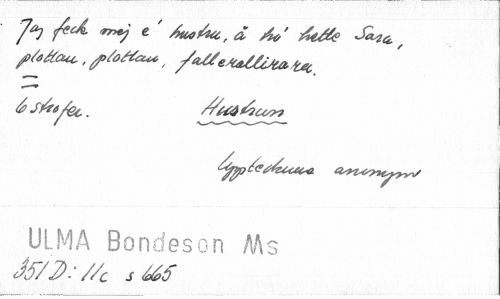 Jag feck mej é hustru, å hó hette Sara,
plottan, plottan, fallerallirara.
6 strofer. Hustrun
upptecknare anonym
ULMA Bondeson Ms
351 D: 11c s 665